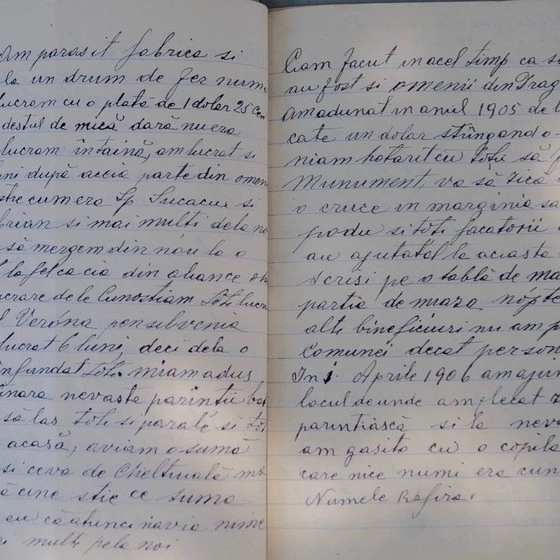 Am parasit fabrica si
la un drum de fer num
lucram cu o plată de 1 dolar 25 cen
destul de mică dară nu era
lucram în taină, am lucrat si
luni după aceia parte din omen
stre cum era Sp Sucacu si
brian si mai multi dela no
să mergem din nou la o
t la fel ca cia din aliance oh
ucrare de le Cunostiam Toti lucru
l Veróna pensilvenia
lucrat 6 luni, deci dela o
nfundat Toti. miam adus
înara nevasta parintii ba
să las Tote si parale si to
acasă, aviam o sumă
si ceva de Cheltuială m
ă cine stie ce suma
eu că atunci navia nime
i multi pela noi
Ciam facut in acel timp ca să
au fost si omenii din Drag
amadunat in anul 1905 de
cate un dolar stringand o
niam hotarit cu Toti să f
Munument, va să zică
o cruce in marginia sa
podu si toti facatorii
au ajutat la aciasta
scrisi pe o tablă de ma
partia de miaza nópte
alte bineficiuri nu am p
Comunei decat person
In 1 Aprilie 1906 am ajun
locul de unde am plecat
parintiască si la neva
am gasito cu o copila
care nice numi era cun
Numele Rafira.